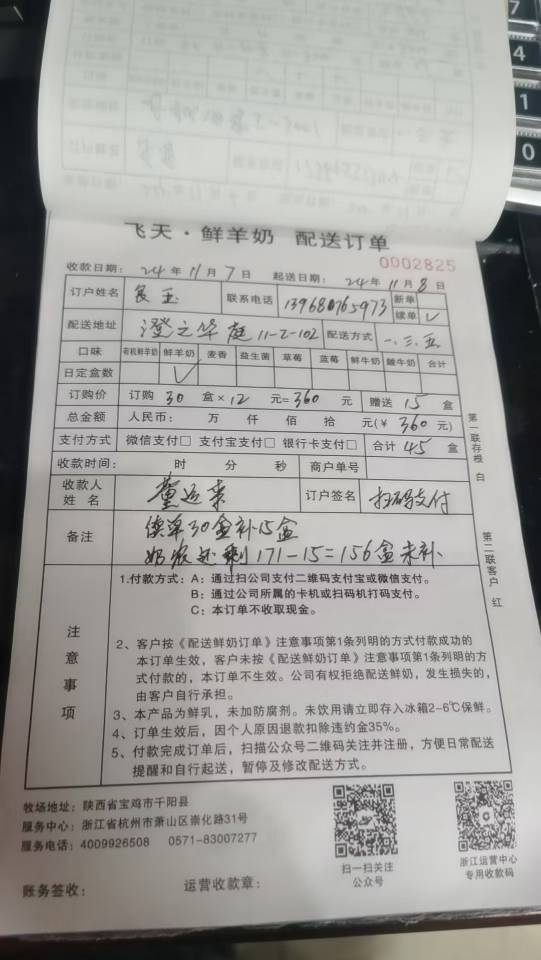 7
4
1
0
飞天·鲜羊奶 配送订单
0002825
收款日期： 24 年 11 月 7 日 起送日期： 24 年 11 月 8 日
订户姓名 联系电话 139680765973 新单
续单 ✓
配送地址 澄之华庭 11-2-102 配送方式 一、三、五
口味 有机鲜羊奶 鲜羊奶 麦香 益生菌 草莓 蓝莓 鲜牛奶 酸牛奶 合计
日定盒数 ✓
订购价 订购 30 盒×12 元=360 元 赠送 15 盒
总金额 人民币： 万 仟 佰 拾 元(¥ 360 元)
支付方式 微信支付□ 支付宝支付□ 银行卡支付□ 合计 45 盒
收款时间： 时 分 秒 商户单号
收款人姓名 董运来 订户签名 扫码支付
备注 续单30盒补15盒
奶农还剩171-15=156盒未补
第一联存根 白
第二联客户 红
注意事项
1.付款方式：A：通过扫公司支付二维码支付宝或微信支付。
B：通过公司所属的卡机或扫码机打码支付。
C：本订单不收取现金。
2、客户按《配送鲜奶订单》注意事项第1条列明的方式付款成功的
本订单生效，客户未按《配送鲜奶订单》注意事项第1条列明的方
式付款的，本订单不生效。公司有权拒绝配送鲜奶，发生损失的，
由客户自行承担。
3、本产品为鲜乳，未加防腐剂。未饮用请立即存入冰箱2-6℃保鲜。
4、订单生效后，因个人原因退款扣除违约金35%。
5、付款完成订单后，扫描公众号二维码关注并注册，方便日常配送
提醒和自行起送，暂停及修改配送方式。
牧场地址：陕西省宝鸡市千阳县
服务中心：浙江省杭州市萧山区崇化路31号
服务电话：4009926508 0571-83007277
扫一扫关注
公众号
浙江运营中心
专用收款码
账务签收： 运营收款章：